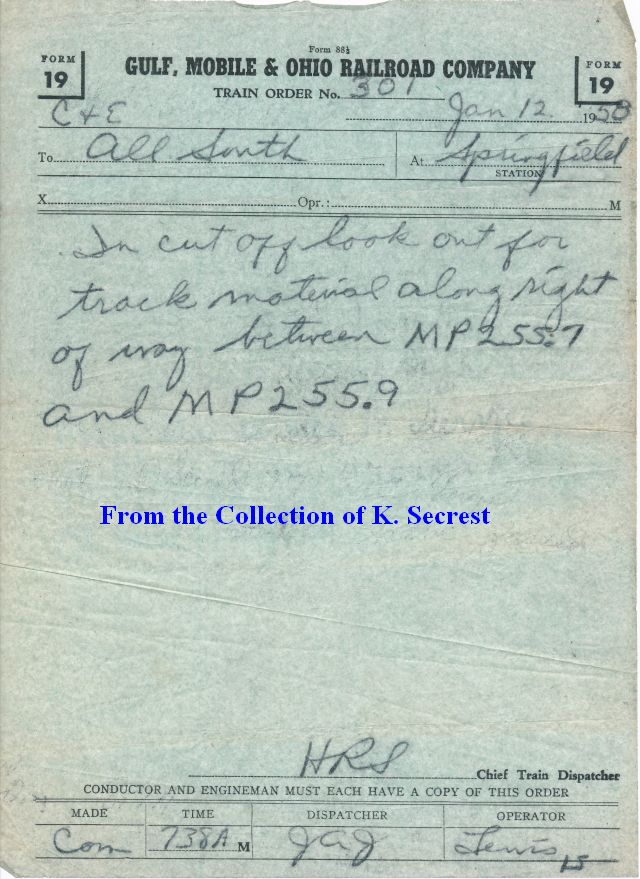 Form 88½
FORM 19
GULF, MOBILE & OHIO RAILROAD COMPANY
FORM 19
TRAIN ORDER No. 301
C & E
Jan 12 1950
To All South
At Springfield
STATION
X Opr.: M
In cut off look out for
track material along right
of way between MP 255.7
and MP 255.9
From the Collection of K. Secrest
HRS
Chief Train Dispatcher
CONDUCTOR AND ENGINEMAN MUST EACH HAVE A COPY OF THIS ORDER
MADE TIME DISPATCHER OPERATOR
Com 738A M JAJ Lewis
15